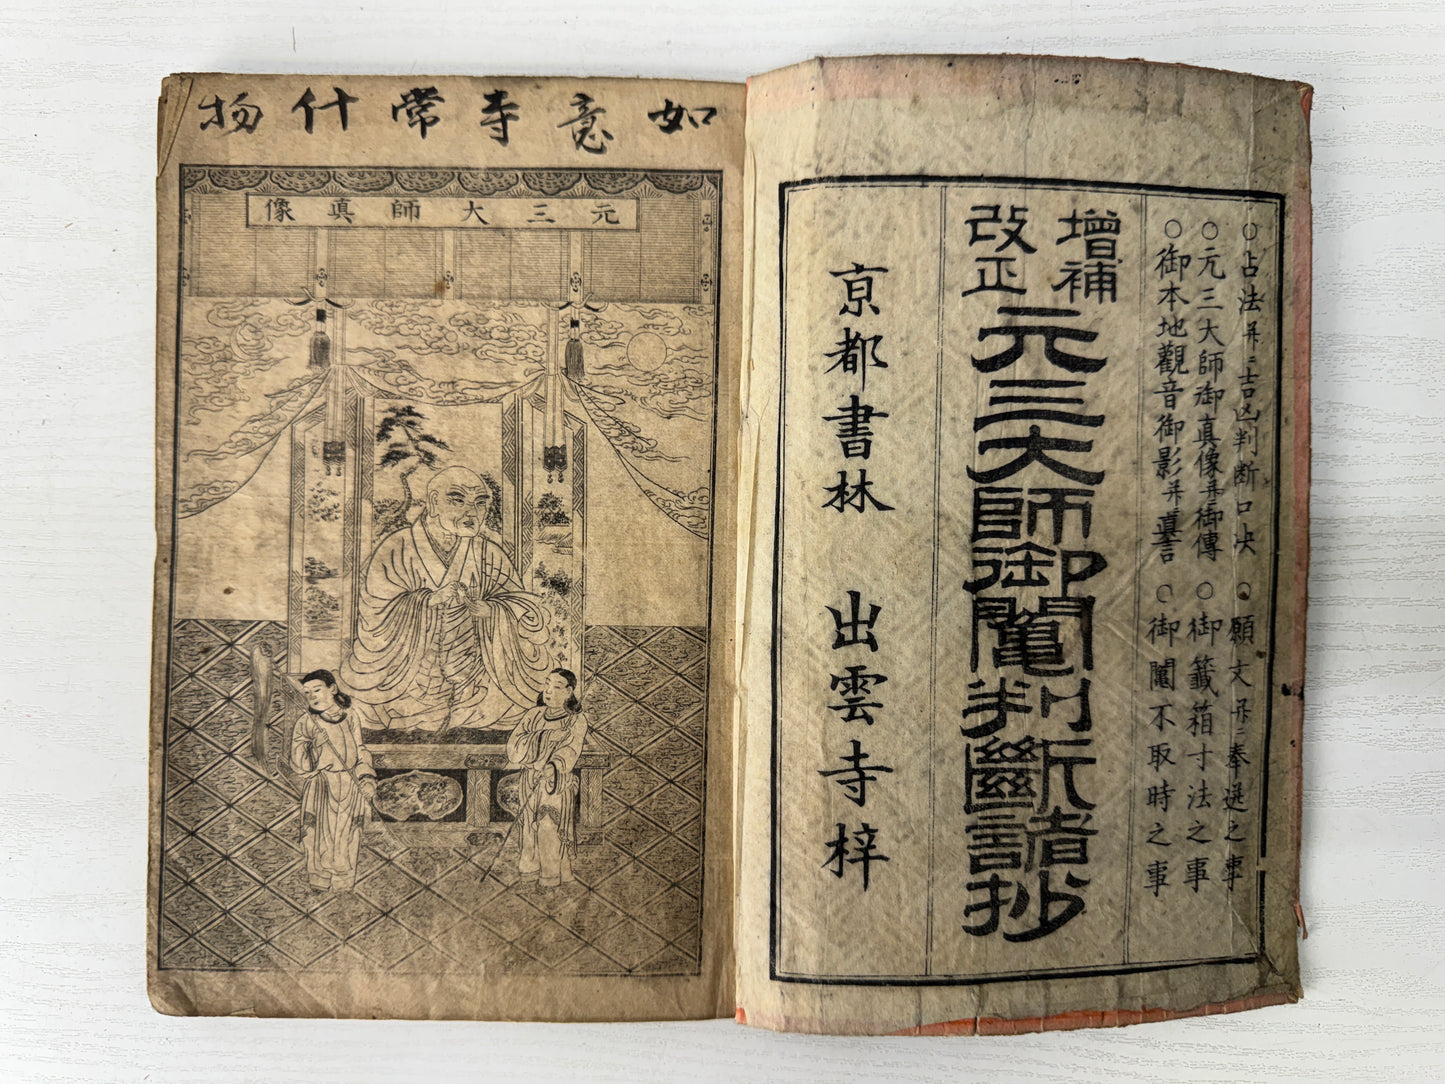 ○占法并ニ吉凶判断口决 ○願文并ニ奉送之事
○元三大師御真像并御傳 ○御籤箱寸法之事
○御本地觀音御影并真言 ○御鬮不取時之事
增補
改正
元三大師御鬮判斷諸抄
京都書林 出雲寺梓
如意寺常什物
元三大師眞像